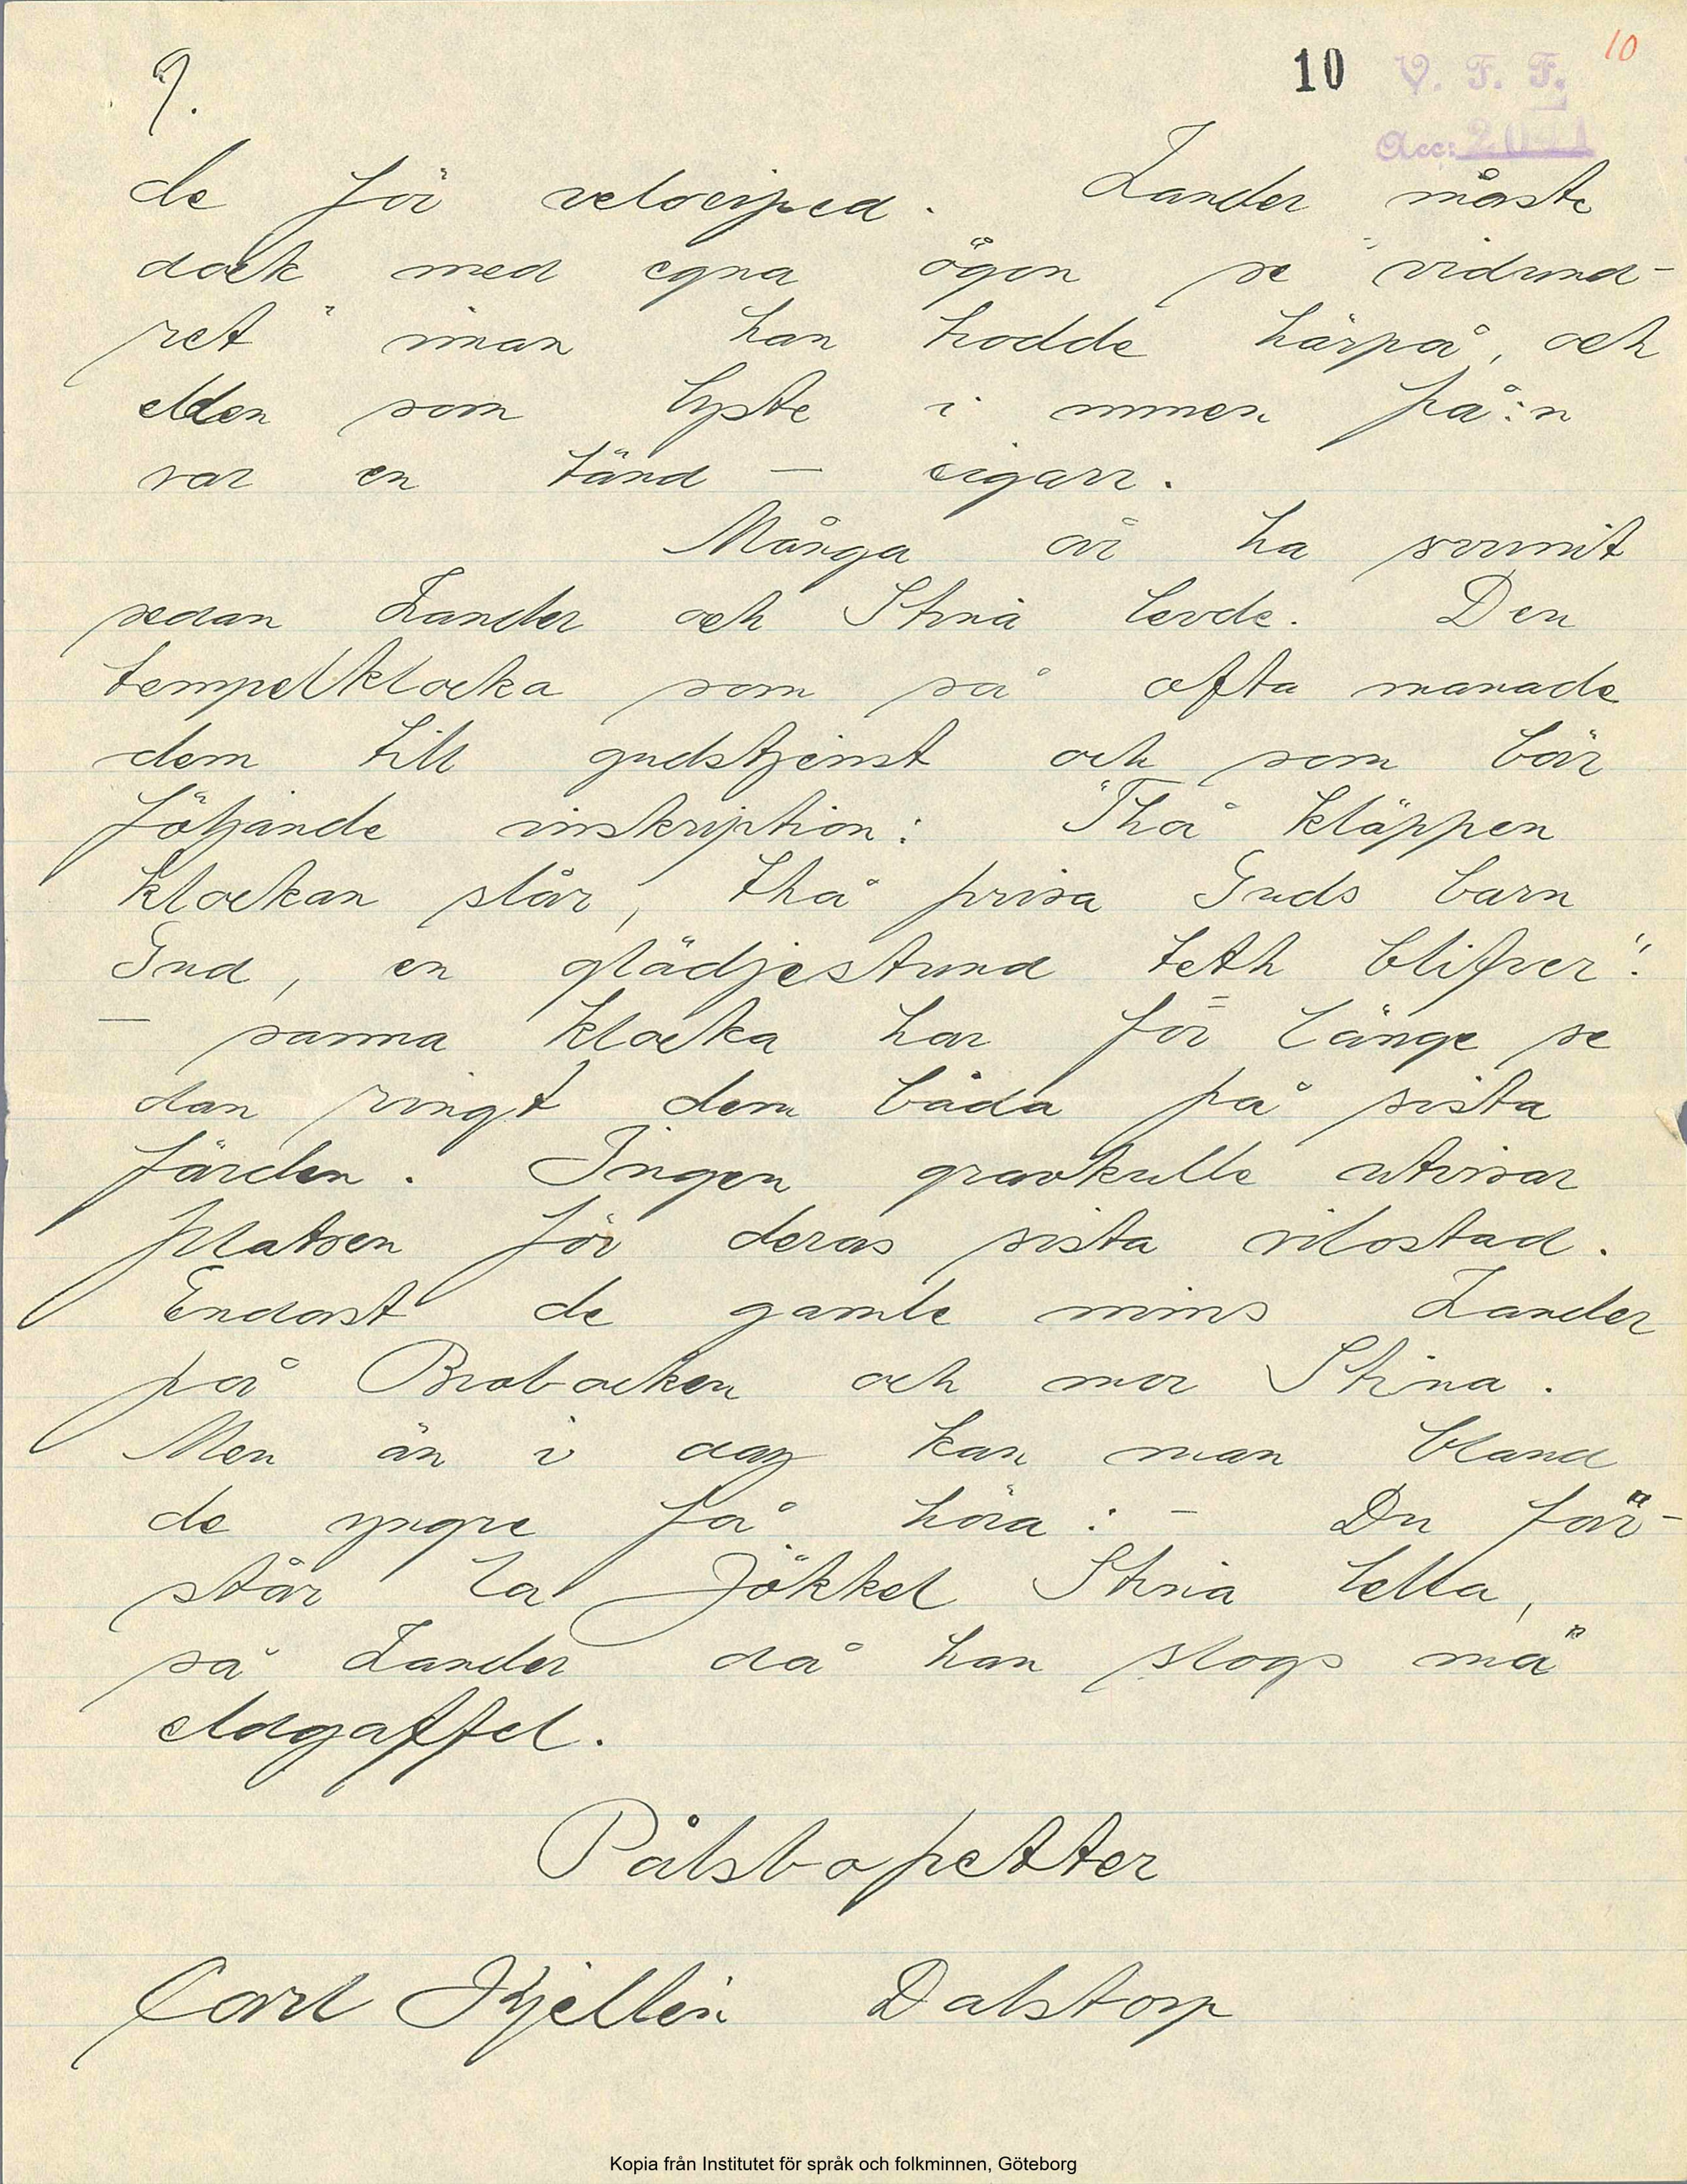 9.
10 V. F. F. 10
Acc: 2041
de för velociped. Zander måste
dock med egna ögon se "vidund-
ret" innan han trodde härpå, och
elden som lyste i munen på:n
var en tänd — cigarr.
Många år ha svunnit
sedan Zander och Stina levde. Den
tempelklocka som så ofta manade
dem till gudstjenst och som bär
följande inskription: "Thå kläppen
klockan slår, thå prisa Guds barn
Gud, en glädjestund teth blifver".
— samma klocka har för länge se
dan ringt dem båda på sista
färden. Ingen gravkulle utvisar
platsen för deras sista vilostad.
Endast de gamle mins Zander
på Brobacken och mor Stina.
Men än i dag kan man bland
de yngre få höra: — Du för-
står la Jökkel Stina lella,
sa Zander då han slogs mä
eldgaffel.
Pålsbopetter
Carl Kjellén Dalstorp
Kopia från Institutet för språk och folkminnen, Göteborg